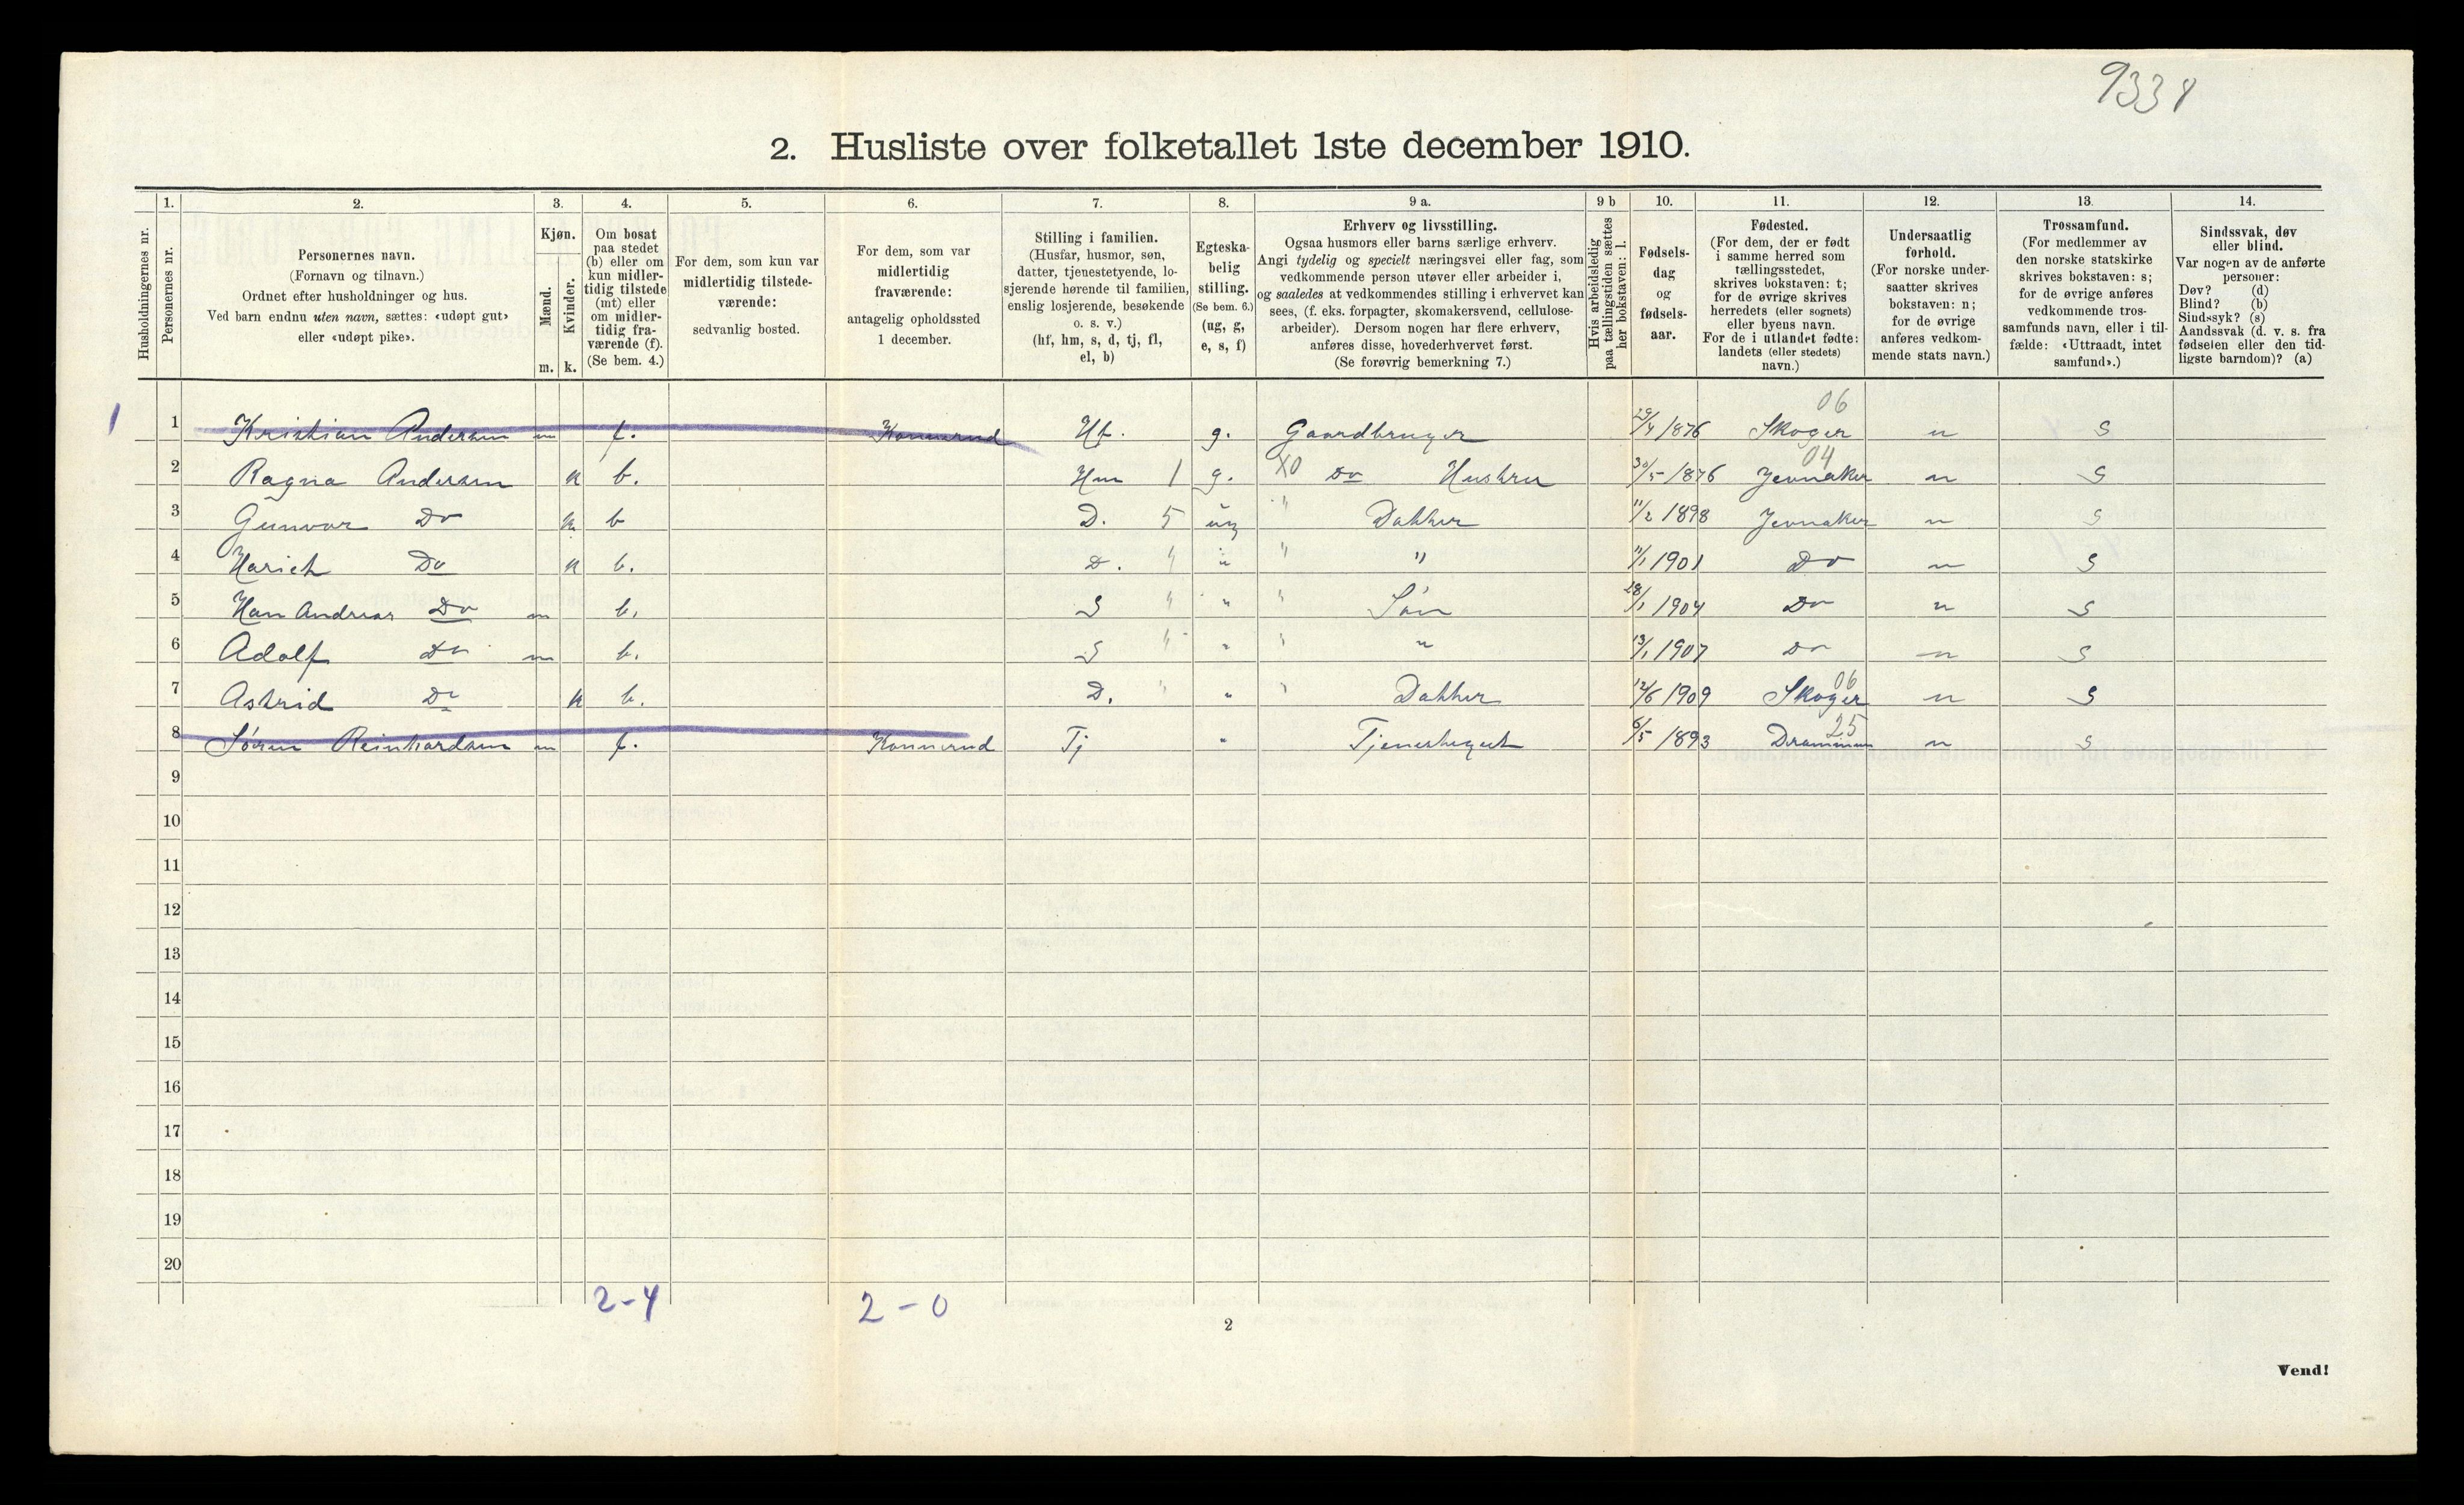 9338
2. Husliste over folketallet 1ste december 1910.
Husholdningernes nr.
1. Personernes nr.
2. Personernes navn.
(Fornavn og tilnavn.)
Ordnet efter husholdninger og hus.
Ved barn endnu uten navn, sættes: «udøpt gut»
eller «udøpt pike».
3. Kjøn.
Mænd. m.
Kvinder. k.
4. Om bosat
paa stedet
(b) eller om
kun midler-
tidig tilstede
(mt) eller
om midler-
tidig fra-
værende (f).
(Se bem. 4.)
5. For dem, som kun var
midlertidig tilstede-
værende:
sedvanlig bosted.
6. For dem, som var
midlertidig
fraværende:
antagelig opholdssted
1 december.
7. Stilling i familien.
(Husfar, husmor, søn,
datter, tjenestetyende, lo-
sjerende hørende til familien,
enslig losjerende, besøkende
o. s. v.)
(hf, hm, s, d, tj, fl,
el, b)
8. Egteska-
belig
stilling.
(Se bem. 6.)
(ug, g,
e, s, f)
9 a. Erhverv og livsstilling.
Ogsaa husmors eller barns særlige erhverv.
Angi tydelig og specielt næringsvei eller fag, som
vedkommende person utøver eller arbeider i,
og saaledes at vedkommendes stilling i erhvervet kan
sees, (f. eks. forpagter, skomakersvend, cellulose-
arbeider). Dersom nogen har flere erhverv,
anføres disse, hovederhvervet først.
(Se forøvrig bemerkning 7.)
9 b Hvis arbeidsledig
paa tællingstiden sættes
her bokstaven: l.
10. Fødsels-
dag
og
fødsels-
aar.
11. Fødested.
(For dem, der er født
i samme herred som
tællingsstedet,
skrives bokstaven: t;
for de øvrige skrives
herredets (eller sognets)
eller byens navn.
For de i utlandet fødte:
landets (eller stedets)
navn.)
12. Undersaatlig
forhold.
(For norske under-
saatter skrives
bokstaven: n;
for de øvrige
anføres vedkom-
mende stats navn.)
13. Trossamfund.
(For medlemmer av
den norske statskirke
skrives bokstaven: s;
for de øvrige anføres
vedkommende tros-
samfunds navn, eller i til-
fælde: «Uttraadt, intet
samfund».)
14. Sindssvak, døv
eller blind.
Var nogen av de anførte
personer:
Døv? (d)
Blind? (b)
Sindssyk? (s)
Aandssvak (d. v. s. fra
fødselen eller den tid-
ligste barndom)? (a)
1 1 Kristian Andersen m f. Konnerud Hf. g. Gaardbruger 29/4 1876 Skoger 06 n S
2 Ragna Andersen k b. Hm 1 g. X0 Do Hustru 30/5 1876 Jevnaker 04 n S
3 Gunvor Do k b D. 5 ug " Datter 11/2 1898 Jevnaker n S
4 Do k b. D. " " " " 11/1 1901 Do n S
5 Han Andreas Do m b. S " " " Søn 28/1 1904 Do n S
6 Adolf Do m b. S " " " " 13/1 1907 Do n S
7 Astrid Do k b. D. " " " Datter 12/6 1909 Skoger 06 n S
8 Søren Reinhardsen m f. Konnerud Tj " Tjenestegut 6/5 1893 Drammen 25 n S
9
10
11
12
13
14
15
16
17
18
19
20
2-4 2-0
2
Vend!